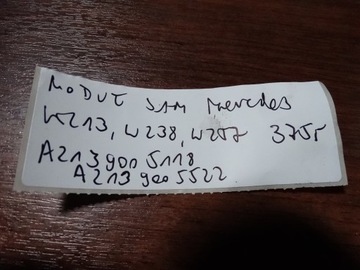 MODUŁ SAM Mercedes
W213, W238, W257 375r
A213 900 5118
A213 900 5522